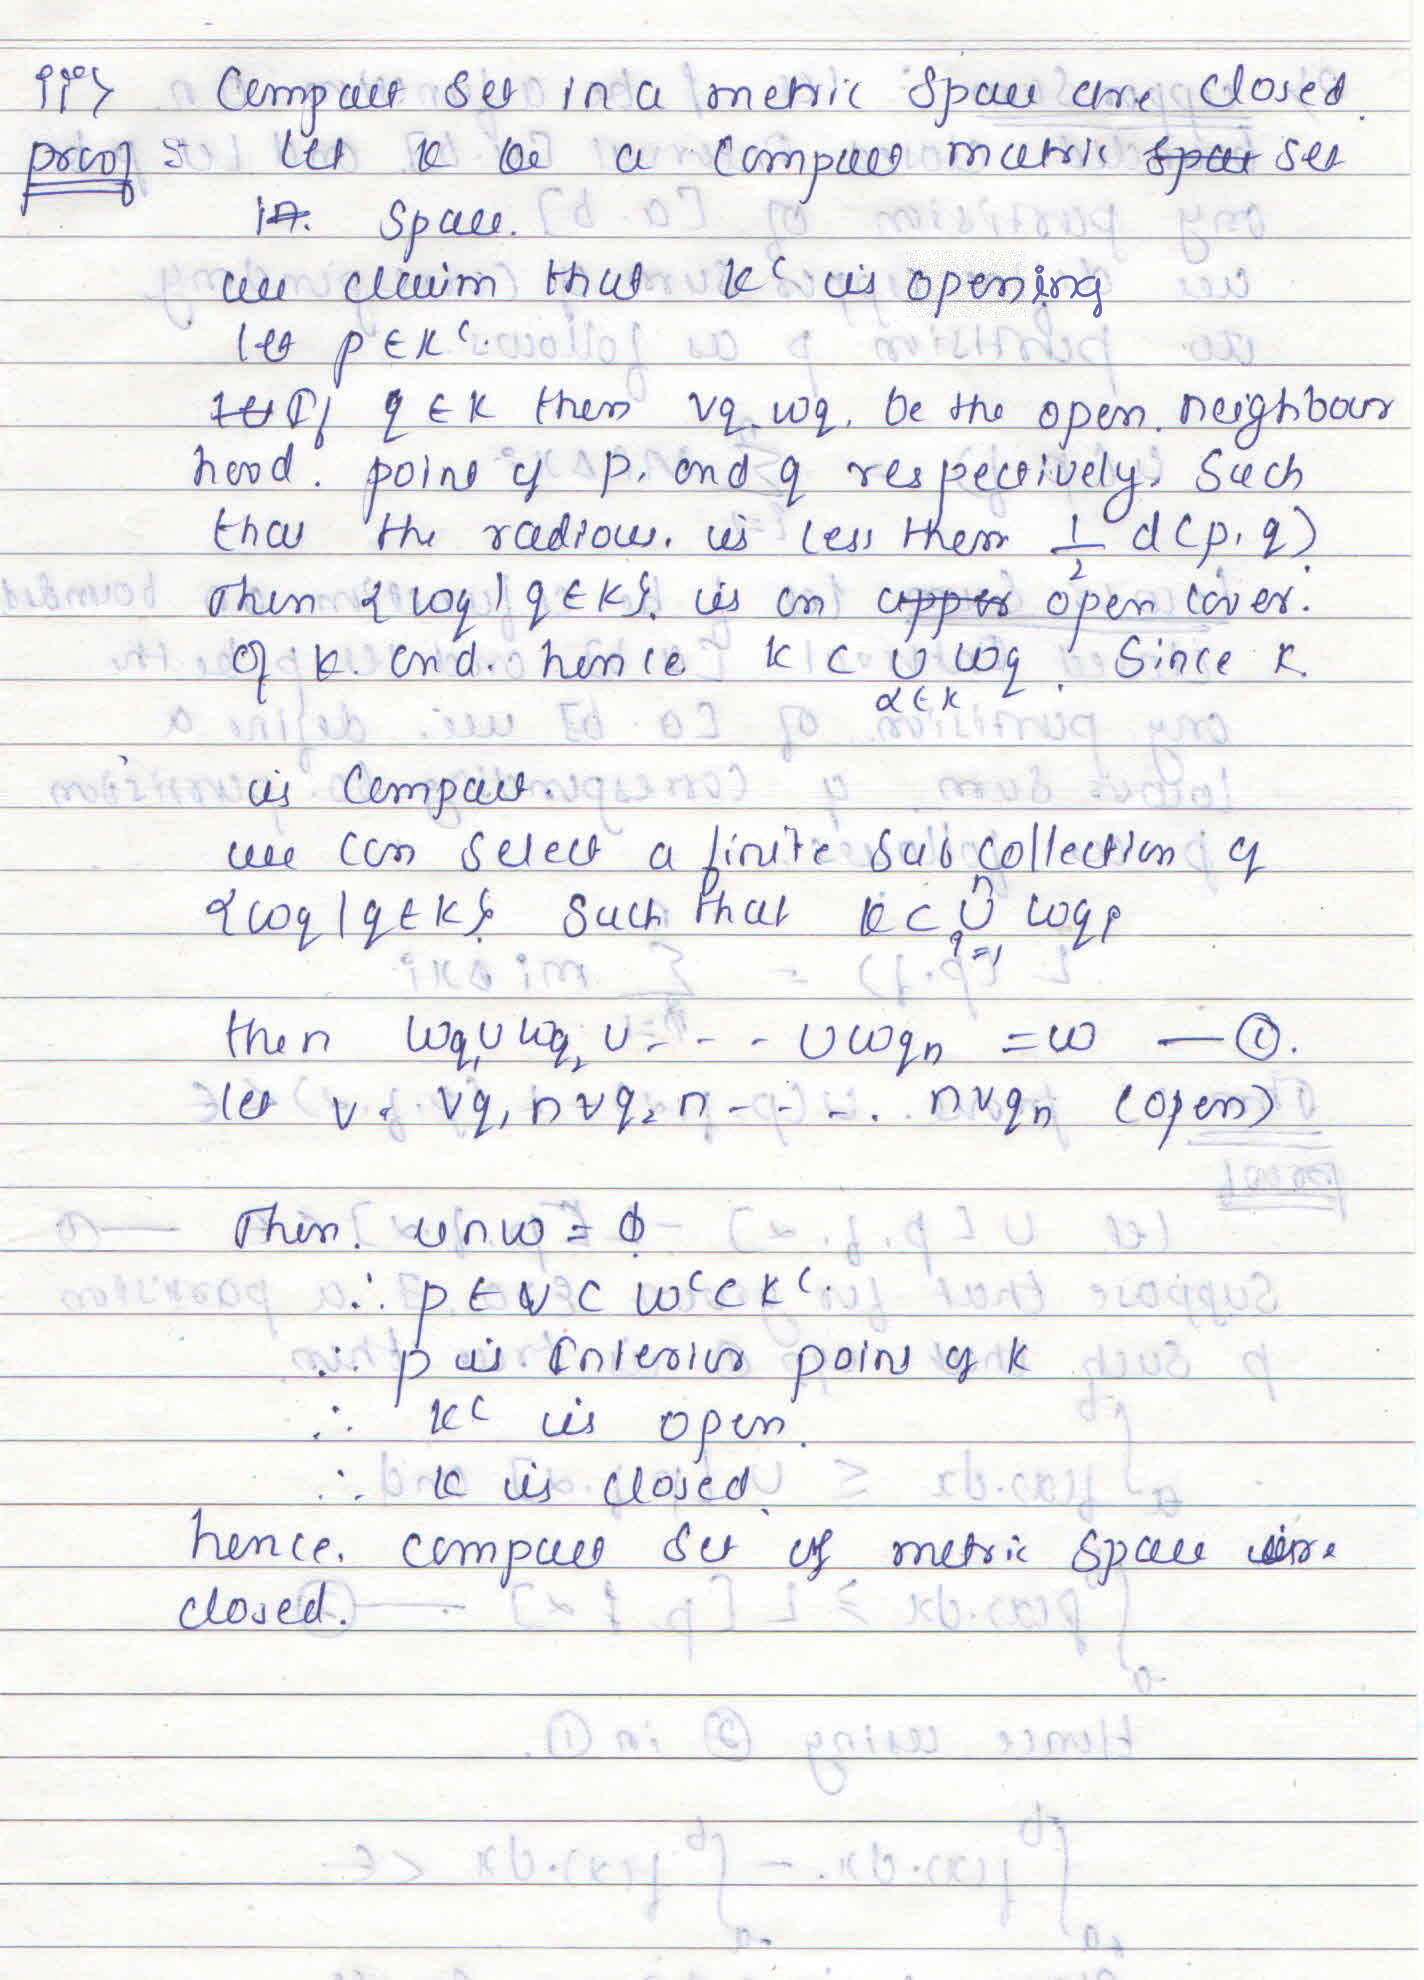 iii> Compact set in a metric space are closed.
proof :- let K be a compact metric spac set
in. space.
we claim that Kᶜ is opening
let p ∈ Kᶜ.
let If q ∈ K then Vq, Wq, be the open neighbour
hood. point of p, and q respectively. Such
that the radious. is less then 1/2 d(p, q).
Then {Wq | q ∈ K}. is an upper open cover.
of K. and. hence K ⊂ ∪ Wq. Since K.
α ∈ K
is Compact.
we can select a finite sub collection of
{Wq | q ∈ K}. Such that K ⊂ ∪ⁿᵢ₌₁ Wqᵢ
then Wq₁ ∪ Wq₂ ∪ - - - ∪ Wqₙ = W — ①.
let V = Vq₁ ∩ Vq₂ ∩ - - - . ∩ Vqₙ (open)
Then. V ∩ W = ϕ
∴ p ∈ V ⊂ Wᶜ ⊂ Kᶜ.
∴ p is Interior point of K
∴ Kᶜ is open.
∴ K is closed.
hence. compact set of metric space are.
closed.